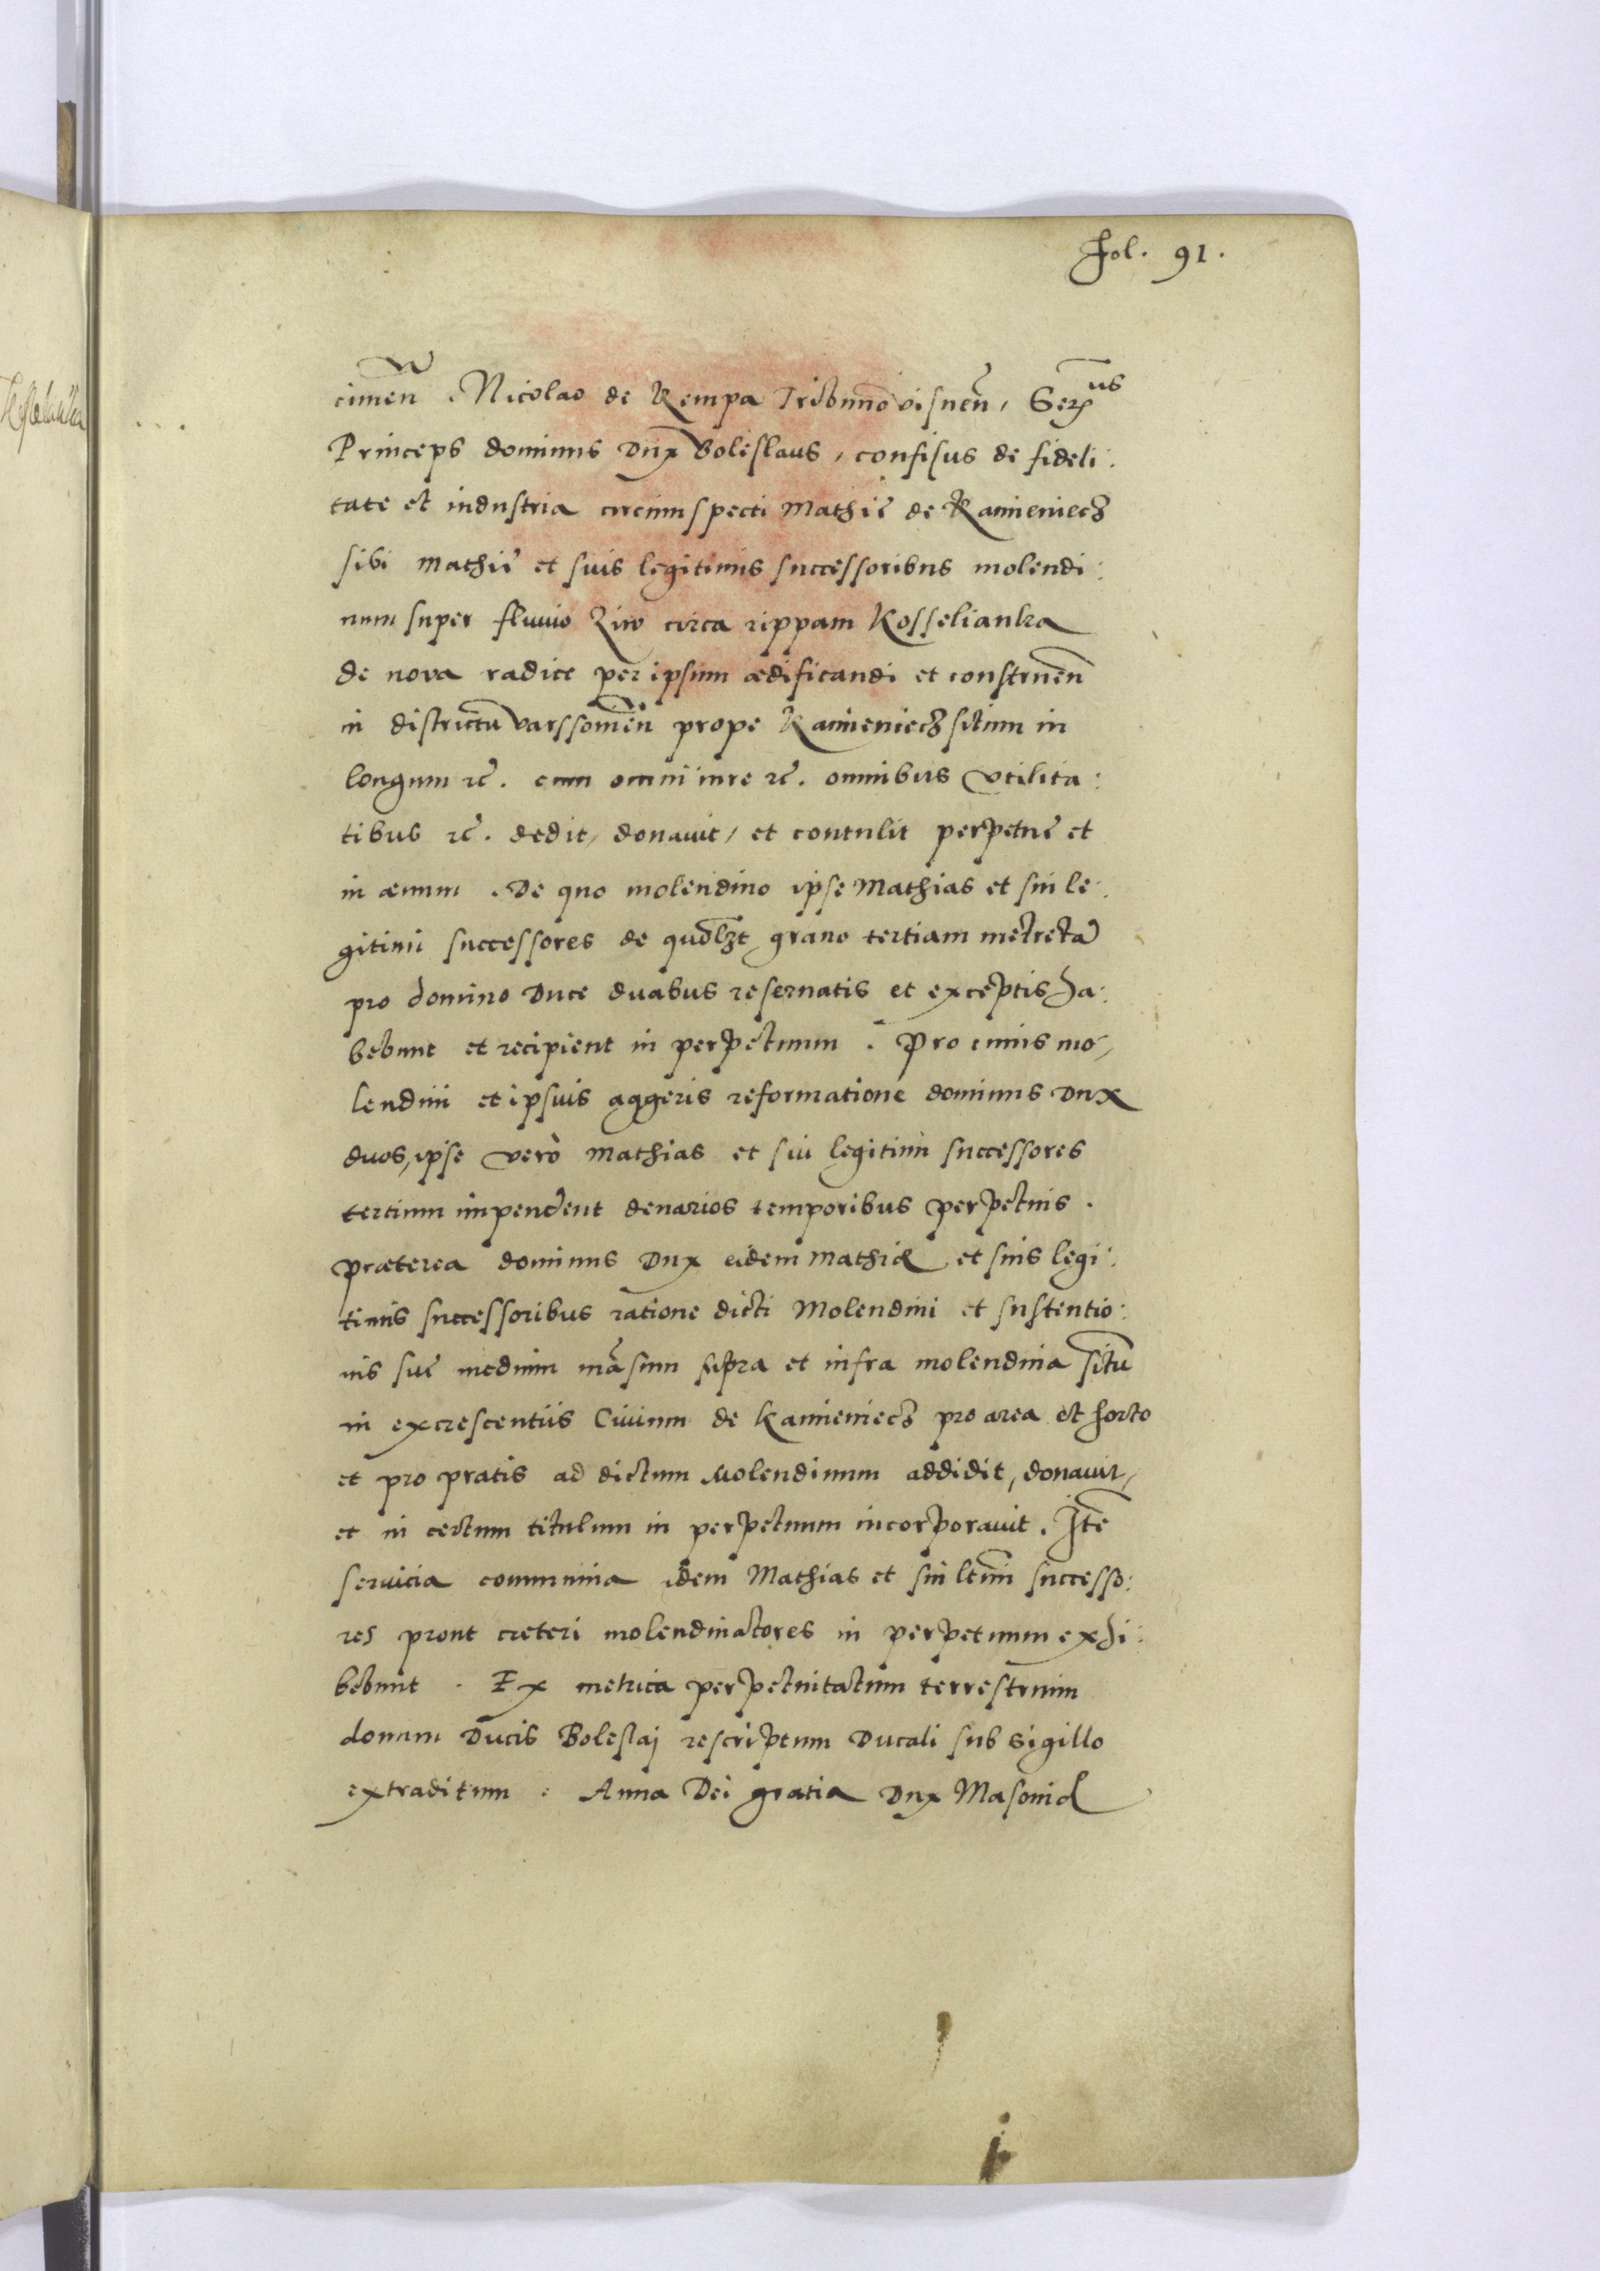 Fol. 91.
cimeñ. Nicolao de Kempa Tribuno visneñ, Serus
Princeps dominus Dux Boleslaus, confisus de fideli:
tate et industria circumspecti Mathie de Kamieniecz
sibi Mathie et suis legitimis successoribus molendi:
num super fluvio Ziro circa rippam Kosselianka
de nova radice per ipsum ædificandi et construeñ
in districtu varssovieñ prope Kamieniecz situm in
longum rc. cum omni iure rc. omnibus vtilita:
tibus rc. dedit, donavit, et contulit perpetue et
in ævum. De quo molendino ipse Mathias et sui le:
gitimi successores de quolzt grano tertiam metretā
pro domino Duce duabus reservatis et exceptis ha:
bebunt et recipient in perpetuum. Pro cuius mo,
lendini et ipsius aggeris reformatione dominus Dux
duos, ipse verò Mathias et sui legitimi successores
tertium impendent denarios temporibus perpetuis.
Præterea dominus Dux eidem Mathiæ et suis legi:
timis successoribus ratione dicti Molendini et sustentio:
nis sue medium māsum supra et infra molendina situ̅
in excrescentiis Civium de Kamieniecz pro area et horto
et pro pratis ad dictum Molendinum addidit, donavit,
et in certum titulum in perpetuum incorporavit. Itē
servicia communia idem Mathias et sui ltimi successo:
res prout cæteri molendinatores in perpetuum exhi:
bebunt. Ex metrica perpetuitatum terrestrium
donum Ducis Boleslaj rescriptum Ducali sub sigillo
extraditum. Anna Dei gratia Dux Masoviæ